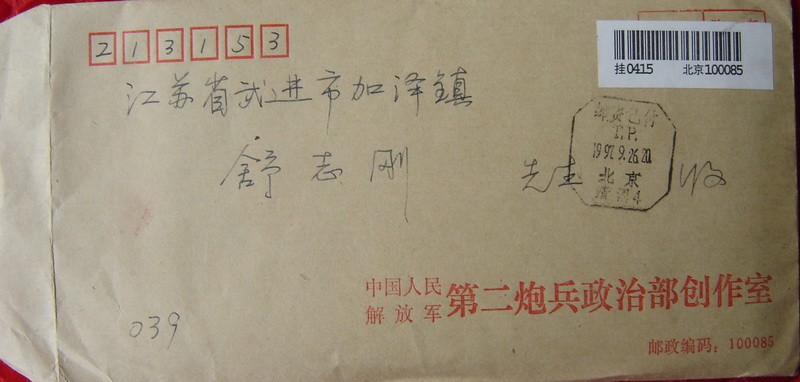 213153
挂0415 北京100085
江苏省武进市加泽镇
邮资已付
T.P.
1997.9.26.20
北京
清河4
舒志刚 先生 收
中国人民
解放军 第二炮兵政治部创作室
039
邮政编码：100085